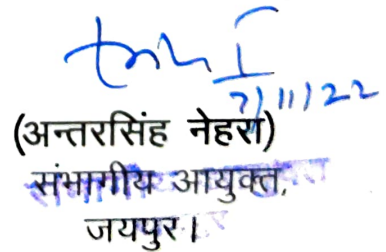 7/11/22
(अन्तरसिंह नेहरा)
संभागीय आयुक्त,
जयपुर।